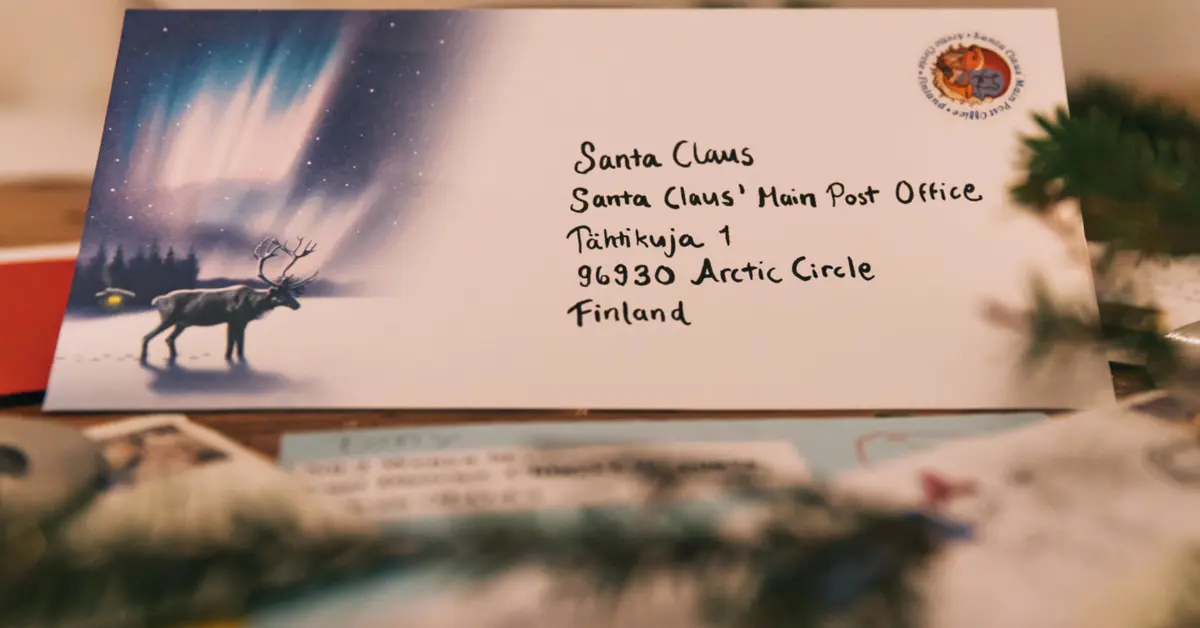 Santa Claus
Santa Claus' Main Post Office
Tähtikuja 1
96930 Arctic Circle
Finland
Santa Claus Main Post Office • Arctic Circle • Finland •